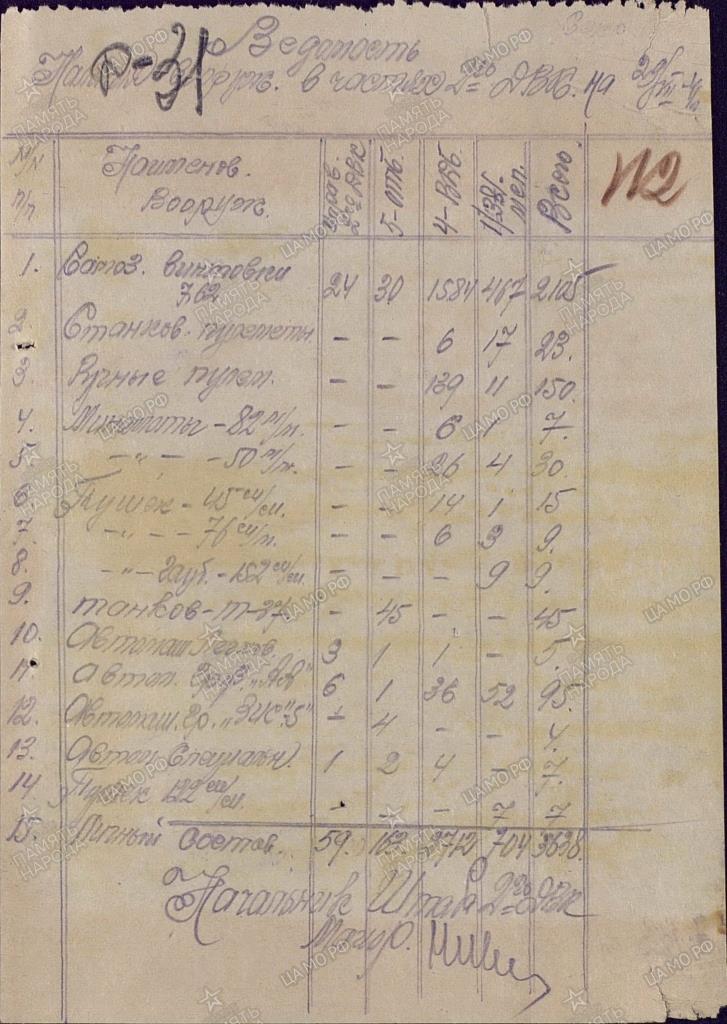 Ведомость
Р-31
Налич. вооруж. в частях 2го ДВК. на
№/№ п/п Наименов. Вооруж. 2го ДВК 5-отб. 4-ВДБ мсп. Всего. №2
1. Самоз. винтовки 7,62 24 30 1584 467 2105
2. Станков. пулеметы - - 6 17 23.
3. Ручные пулем. - - 139 11 150.
4. Минометы - 82 м/м. - - 6 1 7.
5. -"- - 50 м/м. - - 26 4 30.
6. Пушек - 45 см/м. - - 14 1 15
7. -"- - 76 см/м. - - 6 3 9.
8. -"- Гауб. - 152 см/м. - - - 9 9.
9. танков - т-37. - 45 - - 45
10. Автомаш. Легков. 3 1 1 - 5.
11. Автом. Груз. "АА" 6 1 36 52 95.
12. Автомаш. Гр. "ЗИС"-5" - 4 - - 4.
13. Автом. Специальн. 1 2 4 - 7.
14 Пушек 122 см/м. - - - 7 7
15. Личный состав. 59. 163 2712 704 3638.
Начальник Штаба 2го ДВК
Майор.